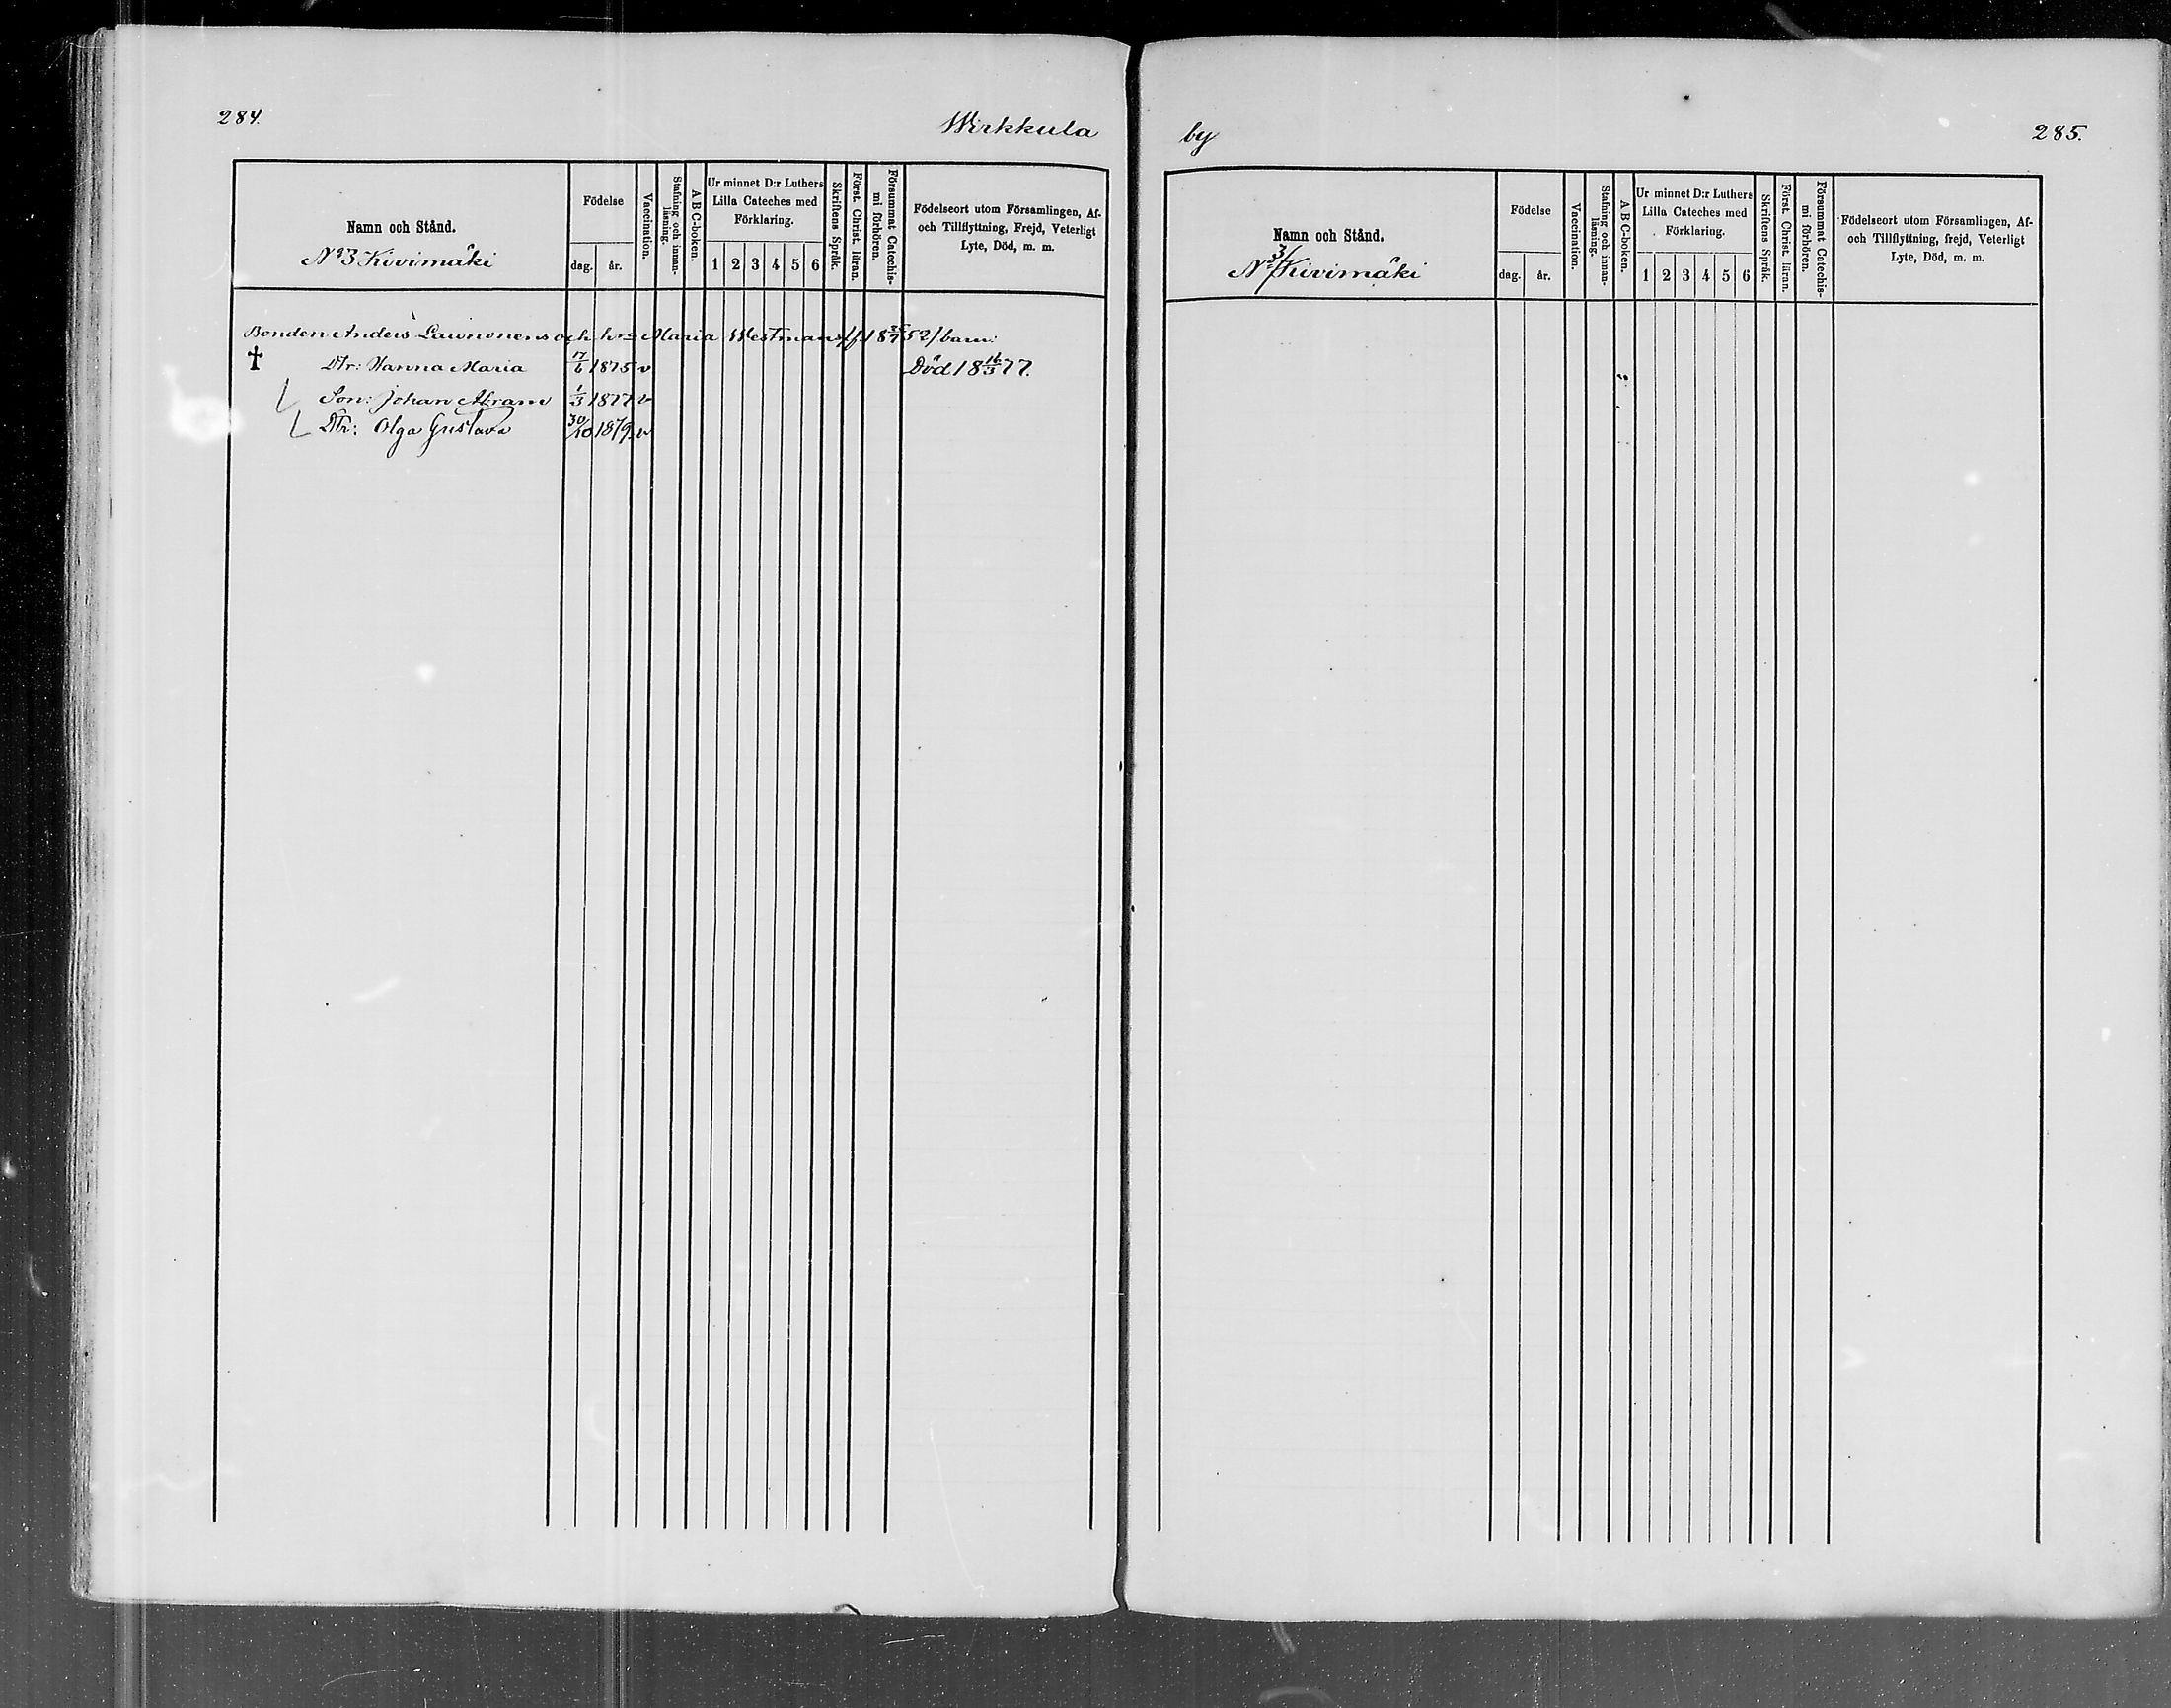 284.
Wirkkula
Namn och Stånd.
No 3 Kivimäki
Födelse
dag.
år.
Vaccination.
Stafning och innan-
läsning.
A B C-boken.
Ur minnet D:r Luthers
Lilla Cateches med
Förklaring.
1 2 3 4 5 6
Skriftens Språk.
Först. Christ. läran.
Försummat Catechis-
mi förhören.
Födelseort utom Församlingen, Af-
och Tillflyttning, Frejd, Veterligt
Lyte, Död, m. m.
Bonden Anders Launonens och h:s Maria Westmans /f. 18 52/ barn:
† Dtr: Hanna Maria 17/6 1875 v Död 18 16/3 77.
Son: Johan Abram 1/3 1877 v
Dtr: Olga Gustava 30/10 1879 v
by
285.
Namn och Stånd.
No 3/ Kivimäki
Födelse
dag.
år.
Vaccination.
Stafning och innan-
läsning.
A B C-boken.
Ur minnet D:r Luthers
Lilla Cateches med
Förklaring.
1 2 3 4 5 6
Skriftens Språk.
Först. Christ. läran.
Försummat Catechis-
mi förhören.
Födelseort utom Församlingen, Af-
och Tillflyttning, frejd, Veterligt
Lyte, Död, m. m.